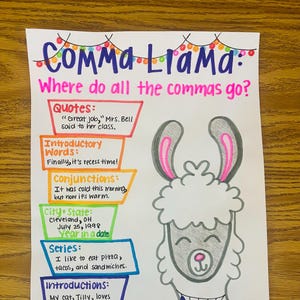 Comma Llama:
Where do all the commas go?
Quotes:
"Great job," Mrs. Bell
said to her class.
Introductory
Words:
Finally, it's recess time!
Conjunctions:
It was cold this morning,
but now it's warm.
City + State:
Cleveland, OH
July 25, 1998
Year in a date
Series:
I like to eat pizza,
tacos, and sandwiches.
Introductions:
My cat, Tilly, loves